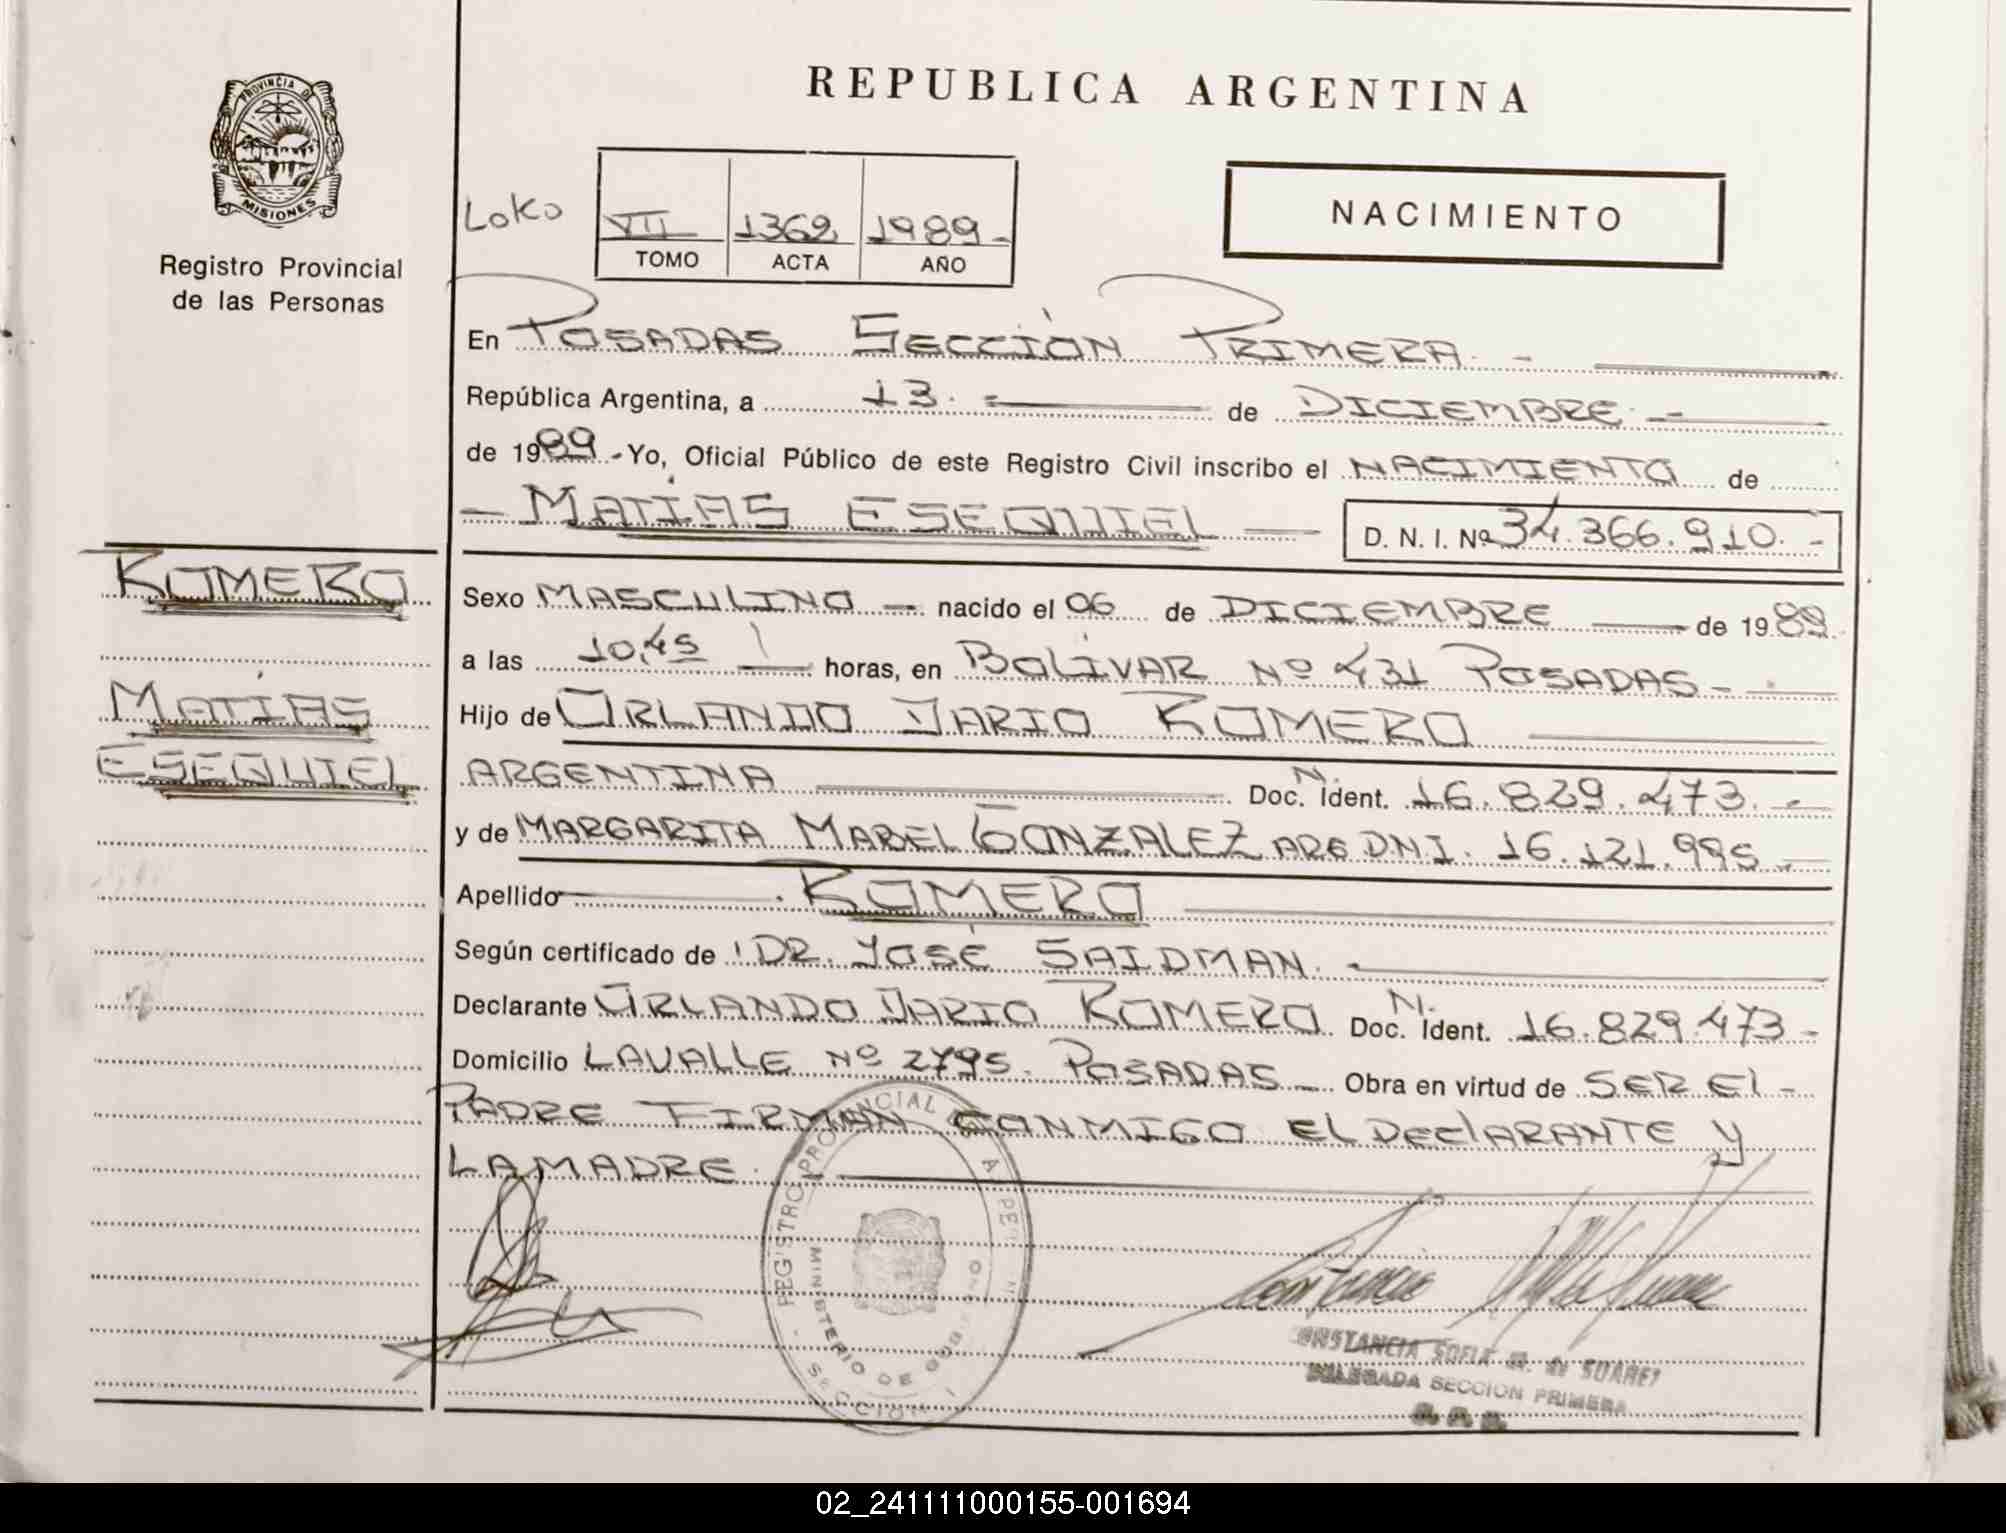 PROVINCIA DE
MISIONES
Registro Provincial
de las Personas
REPUBLICA ARGENTINA
Loko
VII 1362 1989-
TOMO ACTA AÑO
NACIMIENTO
En POSADAS SECCIÓN PRIMERA.-
República Argentina, a 13. de DICIEMBRE.-
de 1989.-Yo, Oficial Público de este Registro Civil inscribo el NACIMIENTO de
- MATÍAS ESEQUIEL - D. N. I. Nº 34.366.910.-
ROMERO
MATÍAS
ESEQUIEL
Sexo MASCULINO - nacido el 06 de DICIEMBRE de 1989.
a las 10,45 horas, en BOLÍVAR Nº 431 POSADAS-
Hijo de ORLANDO DARIO ROMERO
ARGENTINA Doc. N. Ident. 16.829.473.-
y de MARGARITA MABEL GONZALEZ ARG DNI. 16.121.995.-
Apellido ROMERO
Según certificado de DR. JOSÉ SAIDMAN.
Declarante ORLANDO DARIO ROMERO Doc. N. Ident. 16.829.473-
Domicilio LAVALLE Nº 2795. POSADAS- Obra en virtud de SER El-
PADRE FIRMAN CONMIGO EL DEClARANTE y
LA MADRE.
REGISTRO PROVINCIAL
MINISTERIO DE GOBIERNO
SECCION
CONSTANCIA SOFIA de SUAREZ
DELEGADA SECCION PRIMERA
02_241111000155-001694